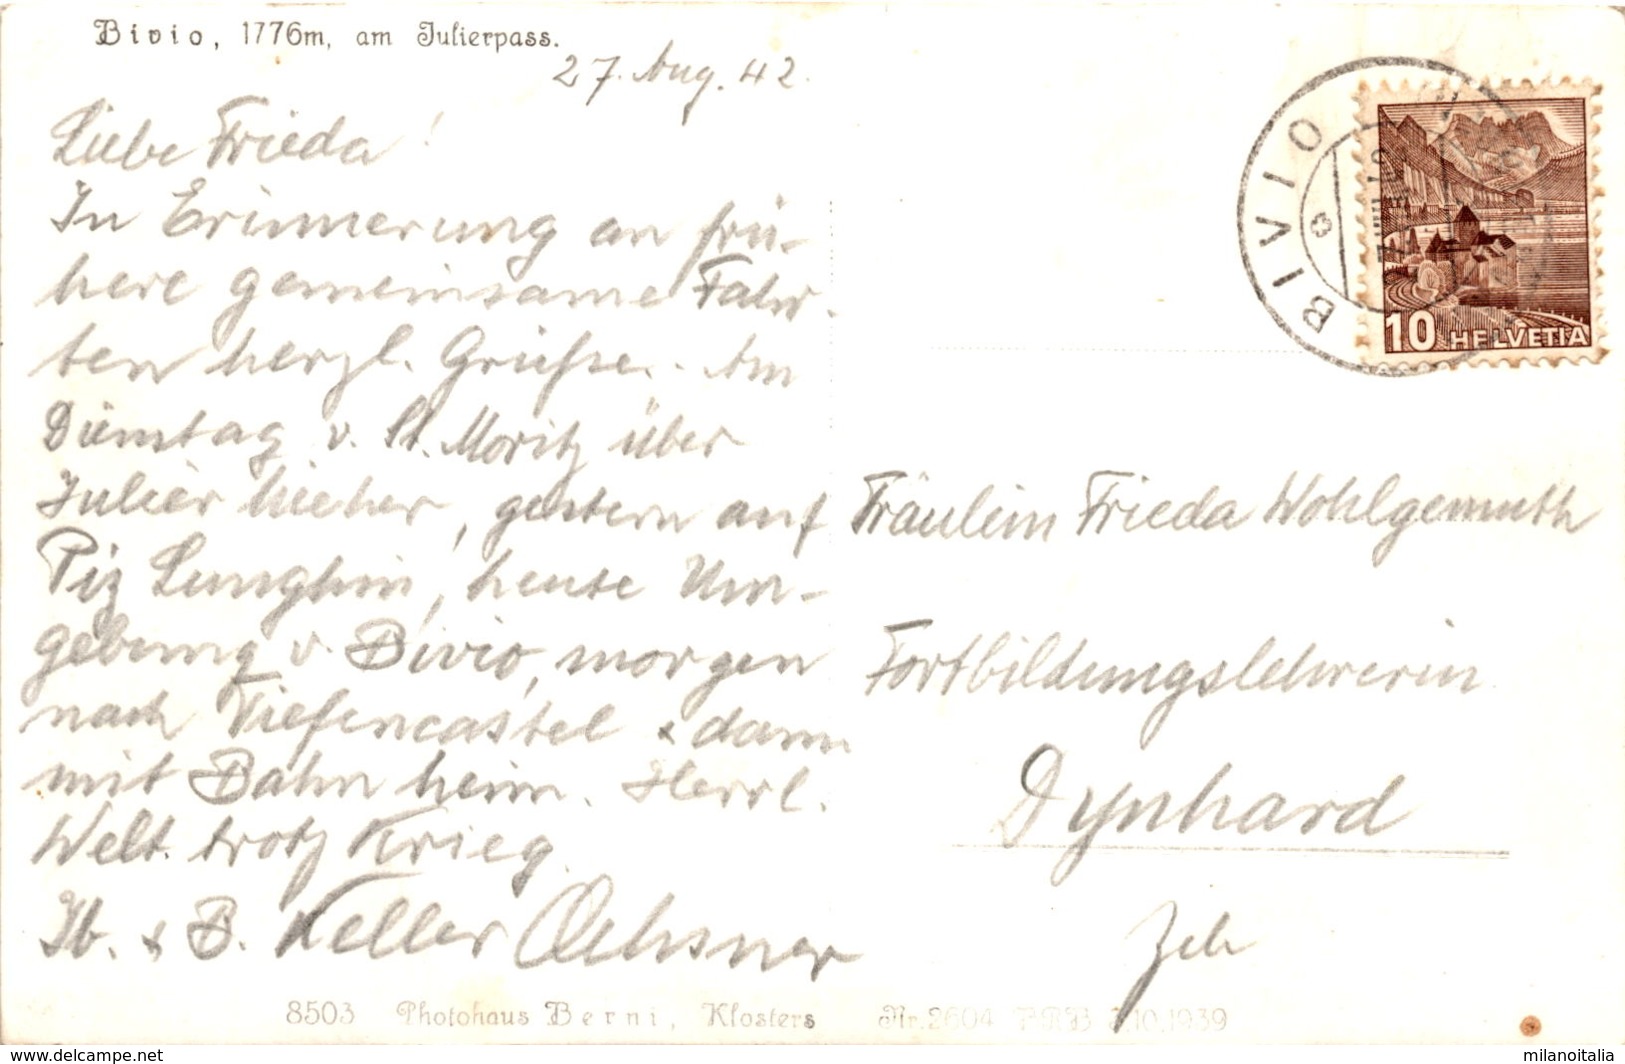 Bivio, 1776m, am Julierpass.
27. Aug. 42.
Liebe Frieda!
In Erinnerung an frü-
here gemeinsame Fahr-
ten herzl. Grüße. Am
Dienstag v. St. Moritz über
Julier hieher, gestern auf
Piz Lunghin, heute Um-
gebung v. Bivio, morgen
nach Tiefencastel & dann
mit Bahn heim. Herrl.
Welt trotz Krieg.
& B. Keller Ochsner
Fräulein Frieda Wohlgemuth
Fortbildungslehrerin
Dynhard
Zch
BIVIO
10 HELVETIA
8503 Photohaus Berni, Klosters Nr. 2604 PRB 3.10.1939
milanoitalia